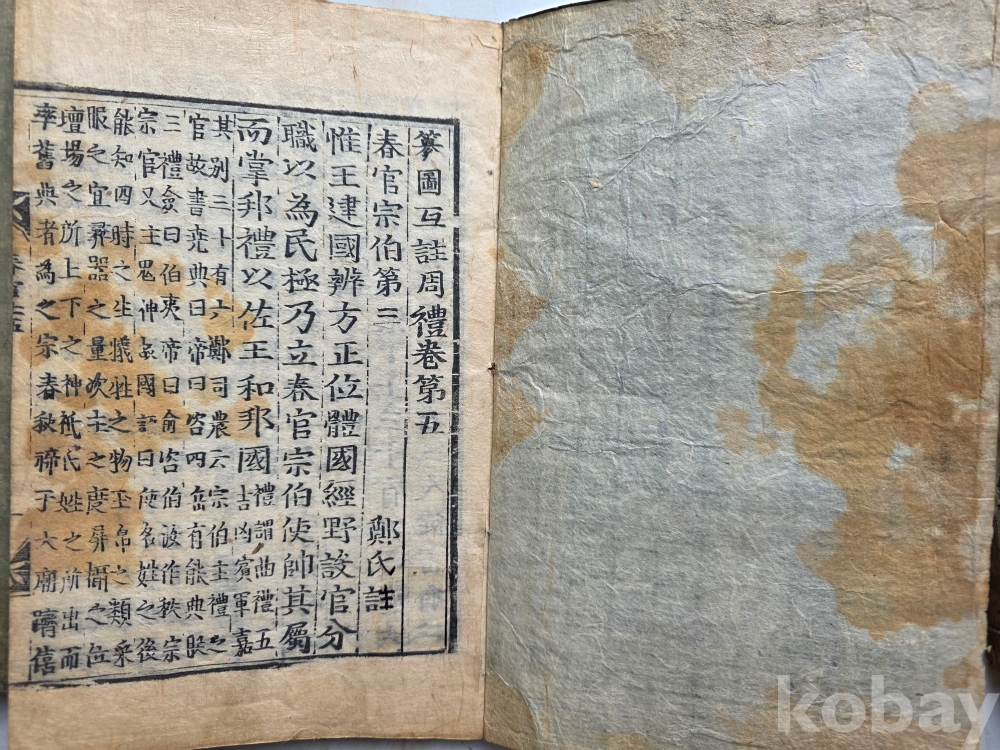 纂圖互註周禮卷第五
春官宗伯第三 鄭氏註
惟王建國辨方正位體國經野設官分
職以為民極乃立春官宗伯使帥其屬
而掌邦禮以佐王和邦國 禮謂曲禮五
吉凶賓軍嘉
其別三十有六鄭司農云宗伯主禮之
官故書堯典曰帝曰咨四岳有能典朕
三禮僉曰伯夷帝曰俞咨伯汝作秩宗
宗官又主鬼神故國語曰使名姓之後
能知四時之生犧牲之物玉帛之類采
服之宜彛器之量次主之度屏攝之位
壇場之所上下之神祇氏姓之所出而
率舊典者為之宗春秋禘于大廟躋僖
kobay